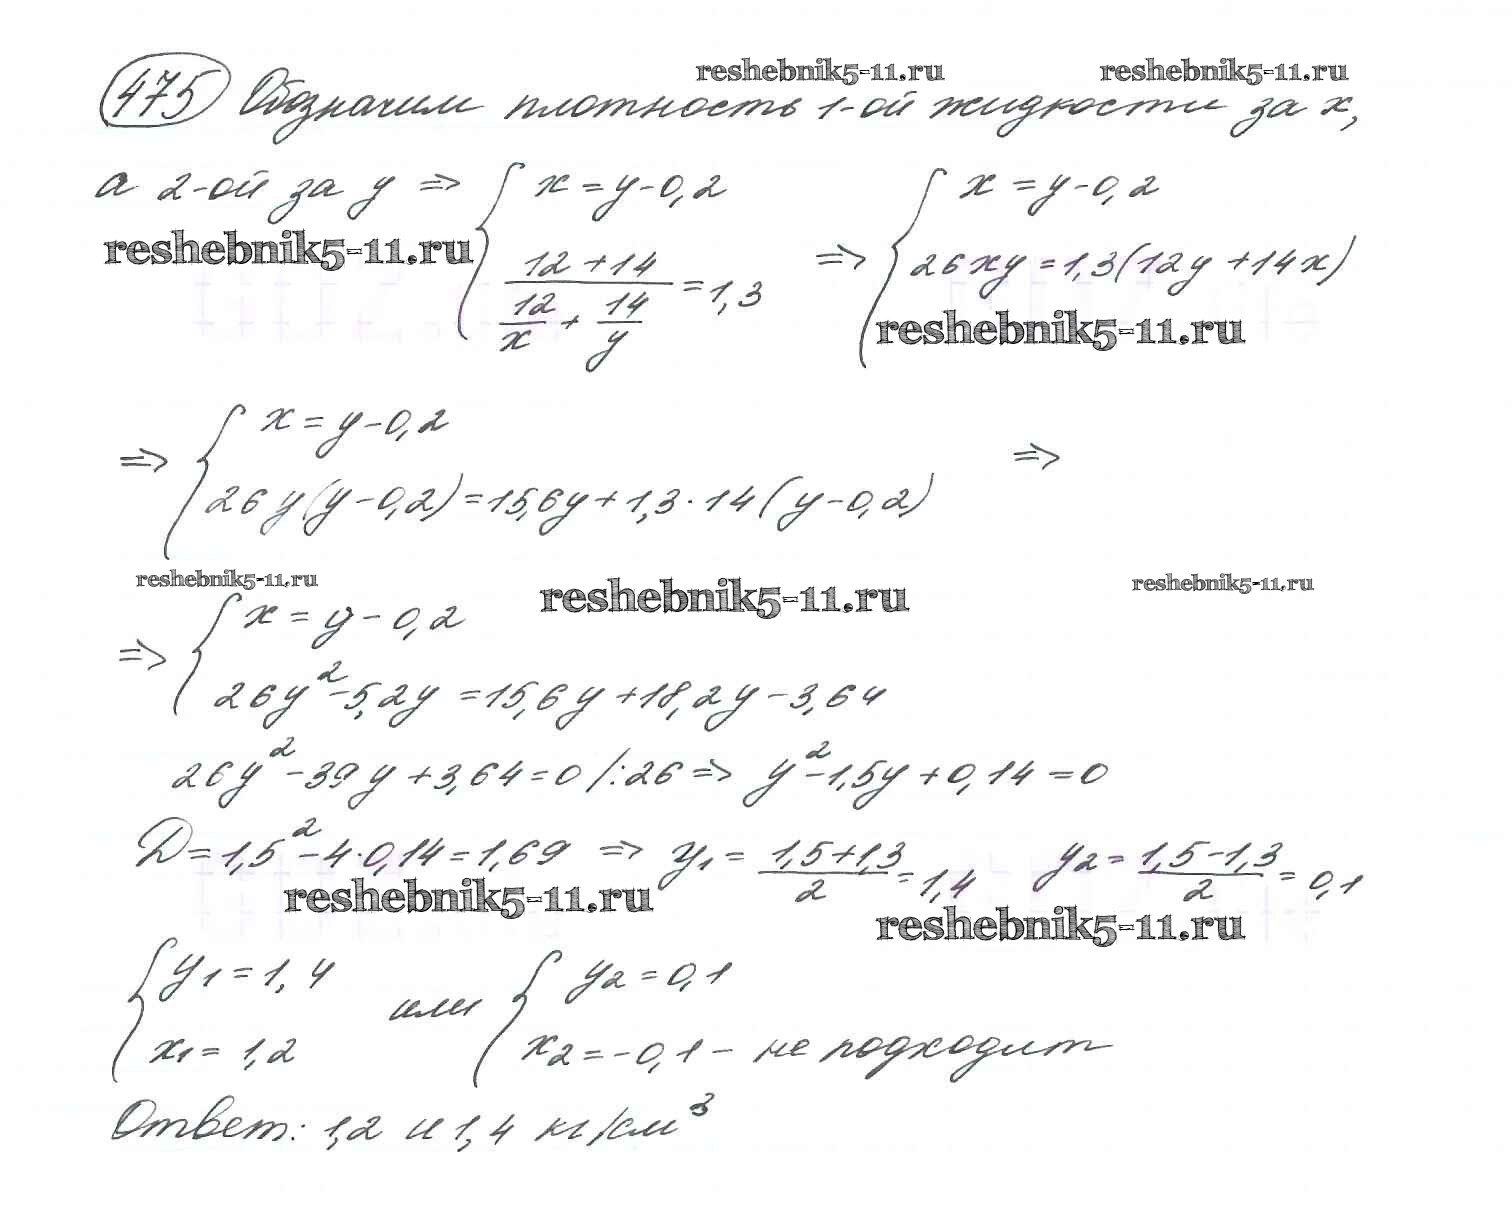 reshebnik5-11.ru reshebnik5-11.ru
475 Обозначим плотность 1-ой жидкости за x,
а 2-ой за y ⇒ { x = y - 0,2 ; (12 + 14) / (12/x + 14/y) = 1,3 ⇒ { x = y - 0,2 ; 26xy = 1,3(12y + 14x)
reshebnik5-11.ru reshebnik5-11.ru
⇒ { x = y - 0,2 ; 26y(y - 0,2) = 15,6y + 1,3 · 14(y - 0,2) ⇒
reshebnik5-11.ru reshebnik5-11.ru reshebnik5-11.ru
⇒ { x = y - 0,2 ; 26y² - 5,2y = 15,6y + 18,2y - 3,64
26y² - 39y + 3,64 = 0 /:26 ⇒ y² - 1,5y + 0,14 = 0
D = 1,5² - 4·0,14 = 1,69 ⇒ y₁ = (1,5 + 1,3)/2 = 1,4 y₂ = (1,5 - 1,3)/2 = 0,1
reshebnik5-11.ru reshebnik5-11.ru
{ y₁ = 1,4 ; x₁ = 1,2 или { y₂ = 0,1 ; x₂ = -0,1 - не подходит
Ответ: 1,2 и 1,4 кг/см³